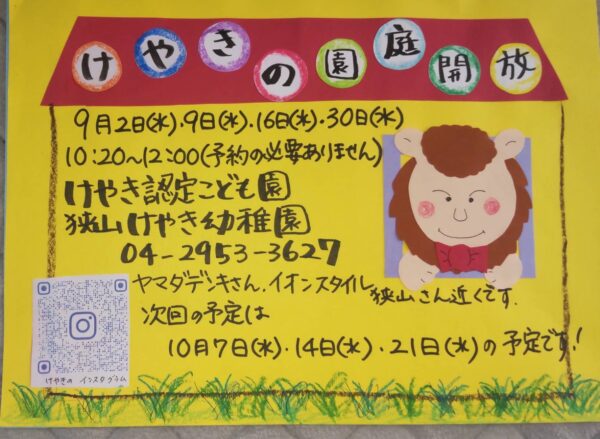 けやきの園庭開放
9月2日(水)・9日(水)・16日(水)・30日(水)
10:20〜12:00(予約の必要ありません)
けやき認定こども園
狭山けやき幼稚園
04-2953-3627
ヤマダデンキさん、イオンスタイル狭山さん近くです.
次回の予定は
10月7日(水)・14日(水)・21日(水)の予定です!
けやきの インスタグラム